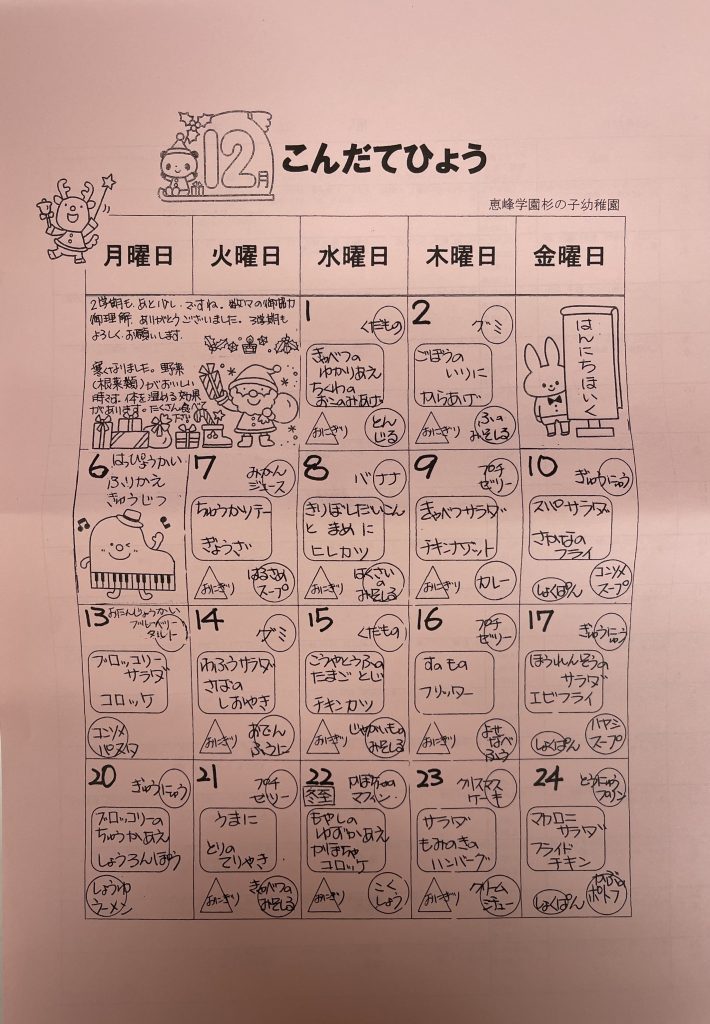 12月
こんだてひょう
恵峰学園杉の子幼稚園
月曜日 火曜日 水曜日 木曜日 金曜日
2学期も、あと少し、ですね。数々の御協力
御理解、ありがとうございました。3学期も
よろしくお願いします。
寒くなりました。野菜
(根菜類)がおいしい
時季は、体を温める効果
があります。たくさん食べて
下さい
1
くだもの
きゃべつの
ゆかりあえ
ちくわの
おこのみあげ
おにぎり
とん
じる
2
グミ
ごぼうの
いりに
からあげ
おにぎり
ふの
みそしる
はんにちほいく
6
はっぴょうかい
ふりかえ
きゅうじつ
7
みかん
ジュース
ちゅうかソテー
ぎょうざ
おにぎり
はるさめ
スープ
8
バナナ
きりぼしだいこん
と まめ に
ヒレカツ
おにぎり
はくさいの
みそしる
9
プチ
ゼリー
きゃべつサラダ
チキンナゲット
おにぎり
カレー
10
ぎゅうにゅう
スパサラダ
さかなの
フライ
しょくぱん
コンソメ
スープ
13
おたんじょうかーい
ブルーベリー
タルト
ブロッコリー
サラダ
コロッケ
コンソメ
パスタ
14
グミ
わふうサラダ
さばの
しおやき
おにぎり
おでん
ふうに
15
くだもの
こうやとうふの
たまごとじ
チキンカツ
おにぎり
じゃがいもの
みそしる
16
プチ
ゼリー
すのもの
フリッター
おにぎり
よせ
なべ
ふう
17
ぎゅうにゅう
ほうれんそうの
サラダ
エビフライ
しょくぱん
ハヤシ
スープ
20
ぎゅうにゅう
ブロッコリーの
ちゅうかあえ
しょうろんぽう
しょうゆ
ラーメン
21
プチ
ゼリー
うまに
とりの
てりやき
おにぎり
きゃべつの
みそしる
22
冬至
かぼちゃの
マフィン
もやしの
ゆずかあえ
かぼちゃ
コロッケ
おにぎり
こく
しょう
23
クリスマス
ケーキ
サラダ
もみのきの
ハンバーグ
おにぎり
クリーム
シチュー
24
とうにゅう
プリン
マカロニ
サラダ
フライド
チキン
しょくぱん
かぶの
ポトフ